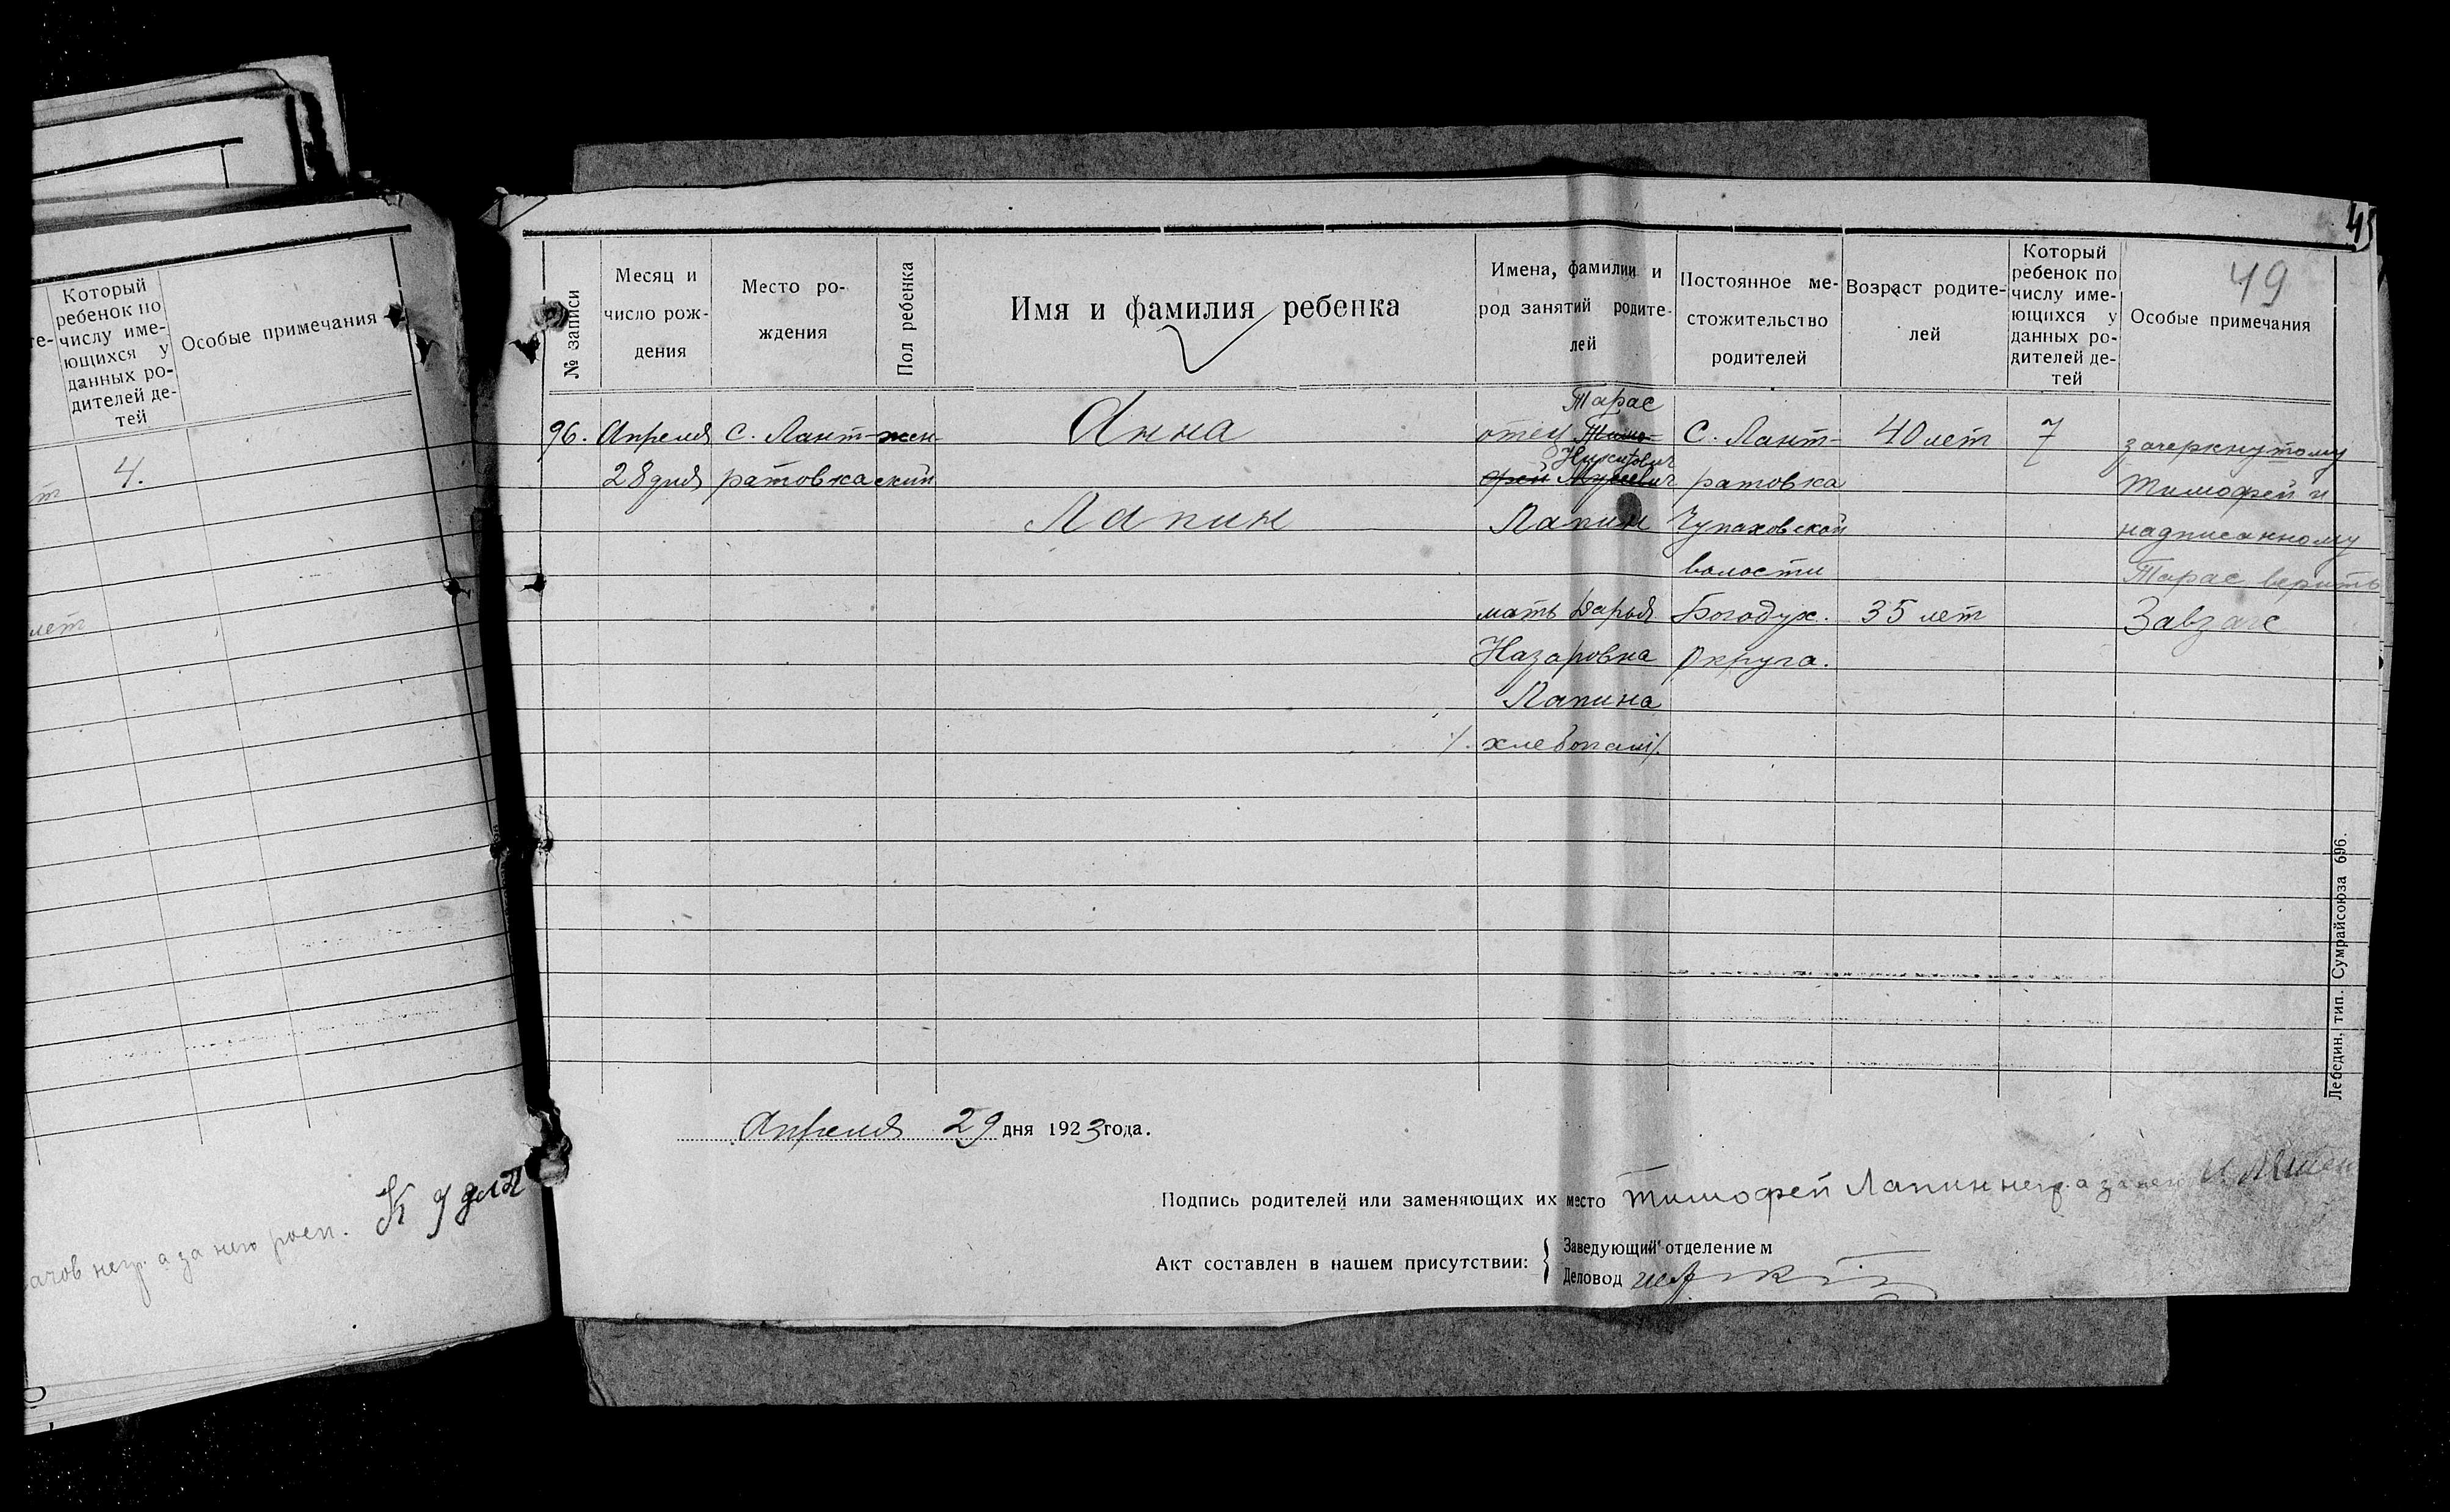 Который
ребенок по
числу име-
ющихся у
данных ро-
дителей де-
тей
Особые примечания
4.
лет
негр. а за него росп.
45
49
№ записи
Месяц и
число рож-
дения
Место ро-
ждения
Пол ребенка
Имя и фамилия ребенка
Имена, фамилии и
род занятий родите-
лей
Постоянное ме-
стожительство
родителей
Возраст родите-
лей
Который
ребенок по
числу име-
ющихся у
данных ро-
дителей де-
тей
Особые примечания
96.
Апреля
28 дня
с. Лант-
ратовка
жен-
ский
Анна
Лапин
Тарас
отец Тимо-
Никитович
фей
Лапин
мать Дарья
Назаровна
Лапина
хлебопаш.
С. Лант-
ратовка
Чупаховской
волости
Богодух.
округа.
40 лет
35 лет
7
зачеркнутому
Тимофей и
надписанному
Тарас верить
Завзагс
Апреля 29 дня 1923 года.
Подпись родителей или заменяющих их место Тимофей Лапин негр. а за него
Акт составлен в нашем присутствии:
Заведующий отделением
Деловод
Лебедин, тип. Сумрайсоюза 696.